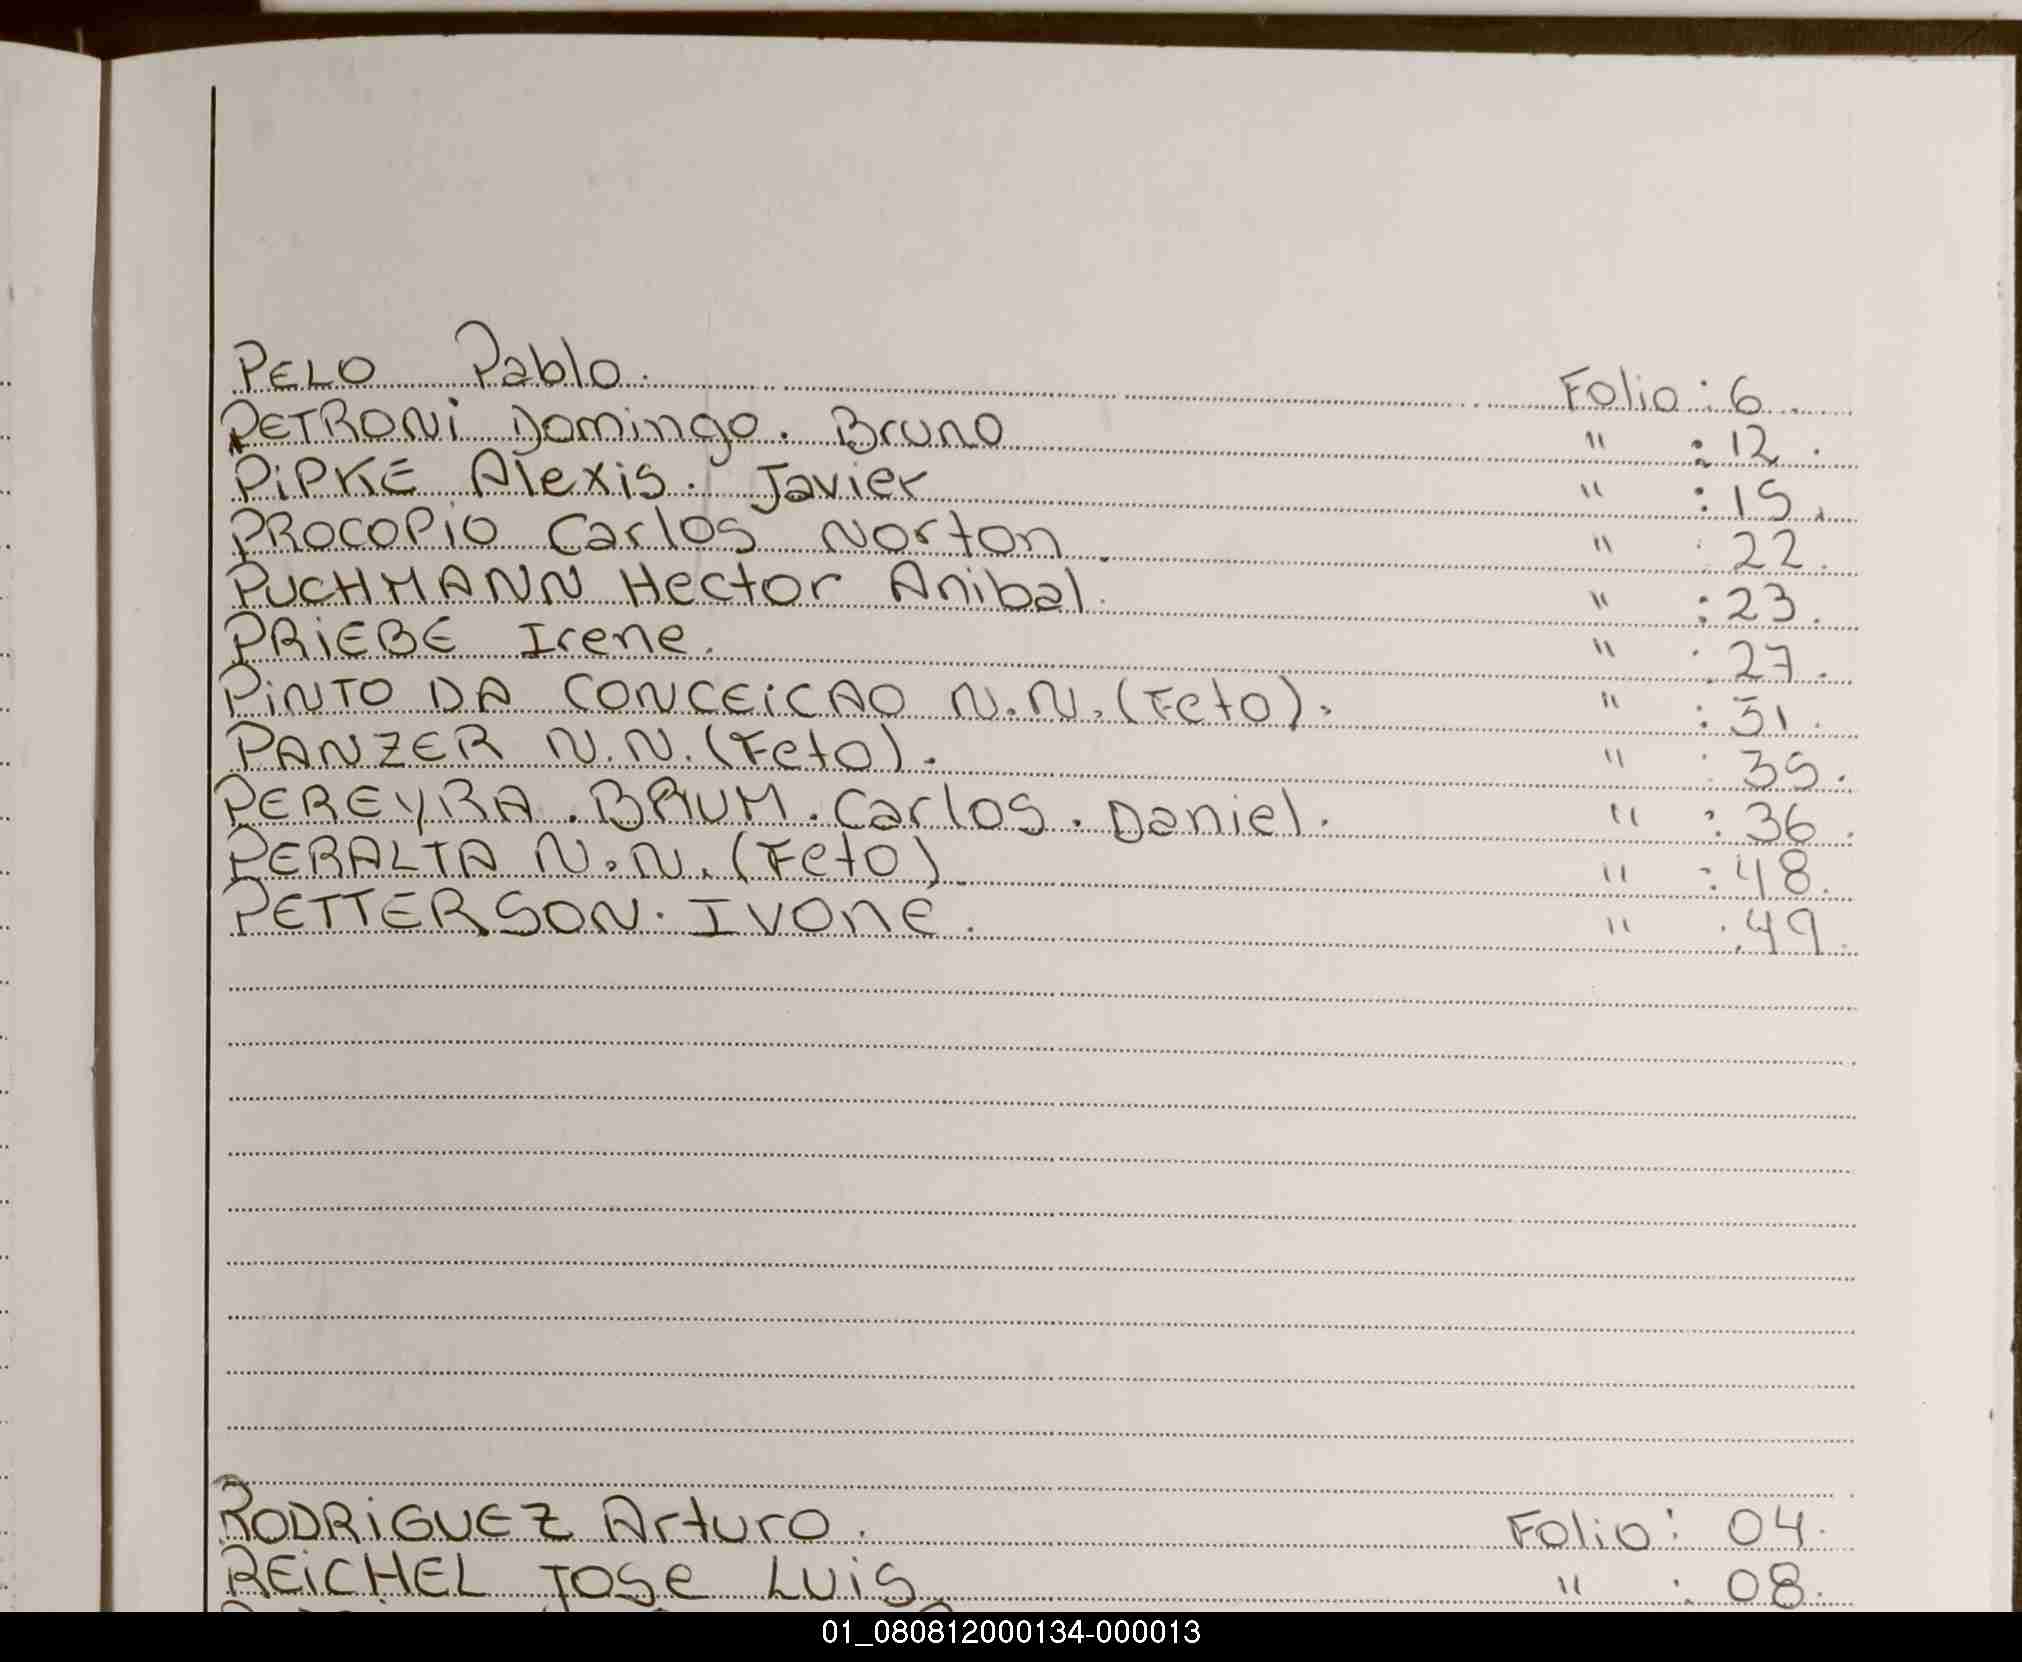 PELO Pablo. Folio : 6
PETRONi Domingo. Bruno " : 12.
PiPKE Alexis. Javier " : 15.
PROCOPiO Carlos Norton. " : 22.
PUCHMANN Hector Anibal. " : 23.
PRiEBE Irene. " : 27.
PiNTO DA CONCEiCAO N.N. (Feto). " : 31.
PANZER N.N. (Feto). " : 35.
PEREYRA. BAUM. Carlos. Daniel. " : 36.
PERALTA N.N. (Feto) " : 48.
PETTERSON. IVONE. " : 49.
RODRiGUEZ Arturo. Folio : 04.
REiCHEL JOSE LUiS " : 08.
01_080812000134-000013